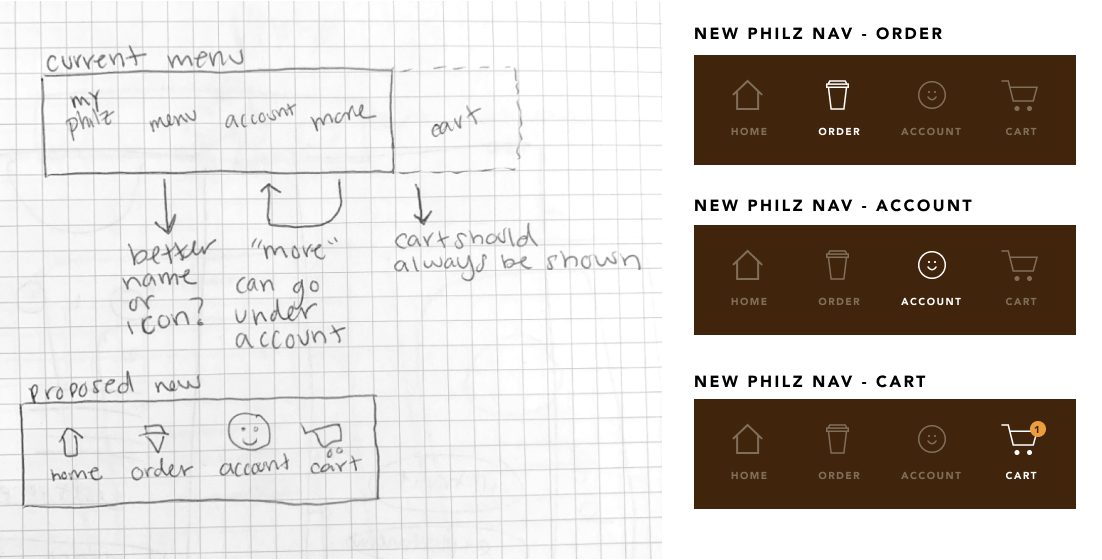 current menu
my
philz
menu
account
more
cart
better
name
or
icon?
"more"
can go
under
account
cart should
always be shown
proposed new
home
order
account
cart
NEW PHILZ NAV - ORDER
HOME
ORDER
ACCOUNT
CART
NEW PHILZ NAV - ACCOUNT
HOME
ORDER
ACCOUNT
CART
NEW PHILZ NAV - CART
1
HOME
ORDER
ACCOUNT
CART